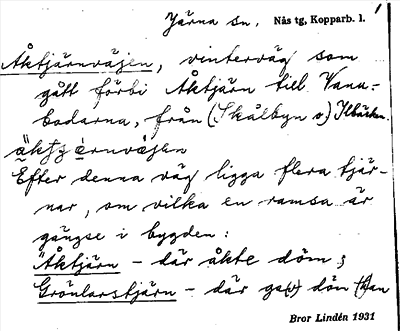 Järna sn. Nås tg, Kopparb. l. 1
Åktjärnväjen, vinterväg som
gått förbi Åktjärn till Vann-
bodarna, från (Skålbyn o.) Ilbäcken.
Efter denna väg ligga flera tjär-
nar, om vilka en ramsa är
gängse i bygden:
"Åktjärn – där åkte döm;
Grönlarstjärn – där
Bror Lindén 1931